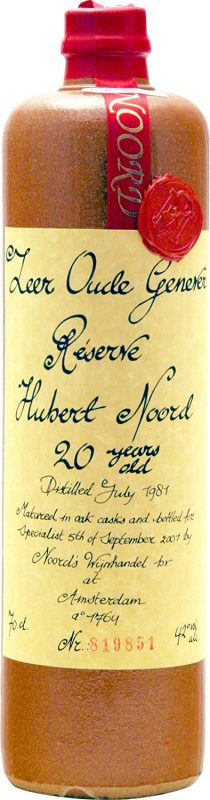 NOORD
Zeer Oude Genever
Réserve
Hubert Noord
20 years
old
Distilled July 1981
Matured in oak casks and bottled for
Specialist 5th of September 2001 by
Noord's Wijnhandel bv
at
Amsterdam
a° 1764
70 cl.
Nr.: 819851
42% vol
alc.